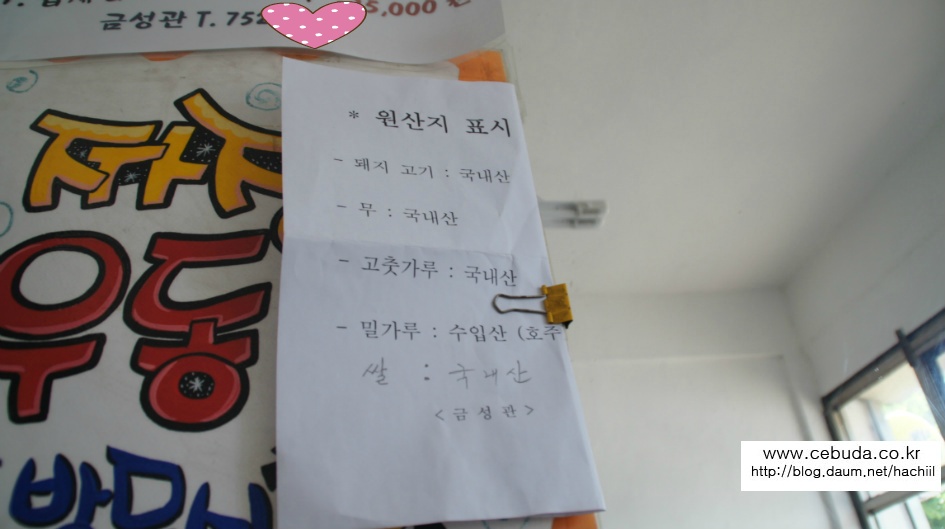 5,000 원
금성관 T. 752
짜장
우동
* 원산지 표시
- 돼지 고기 : 국내산
- 무 : 국내산
- 고춧가루 : 국내산
- 밀가루 : 수입산 (호주
쌀 : 국내산
< 금 성 관 >
www.cebuda.co.kr
http://blog.daum.net/hachiil